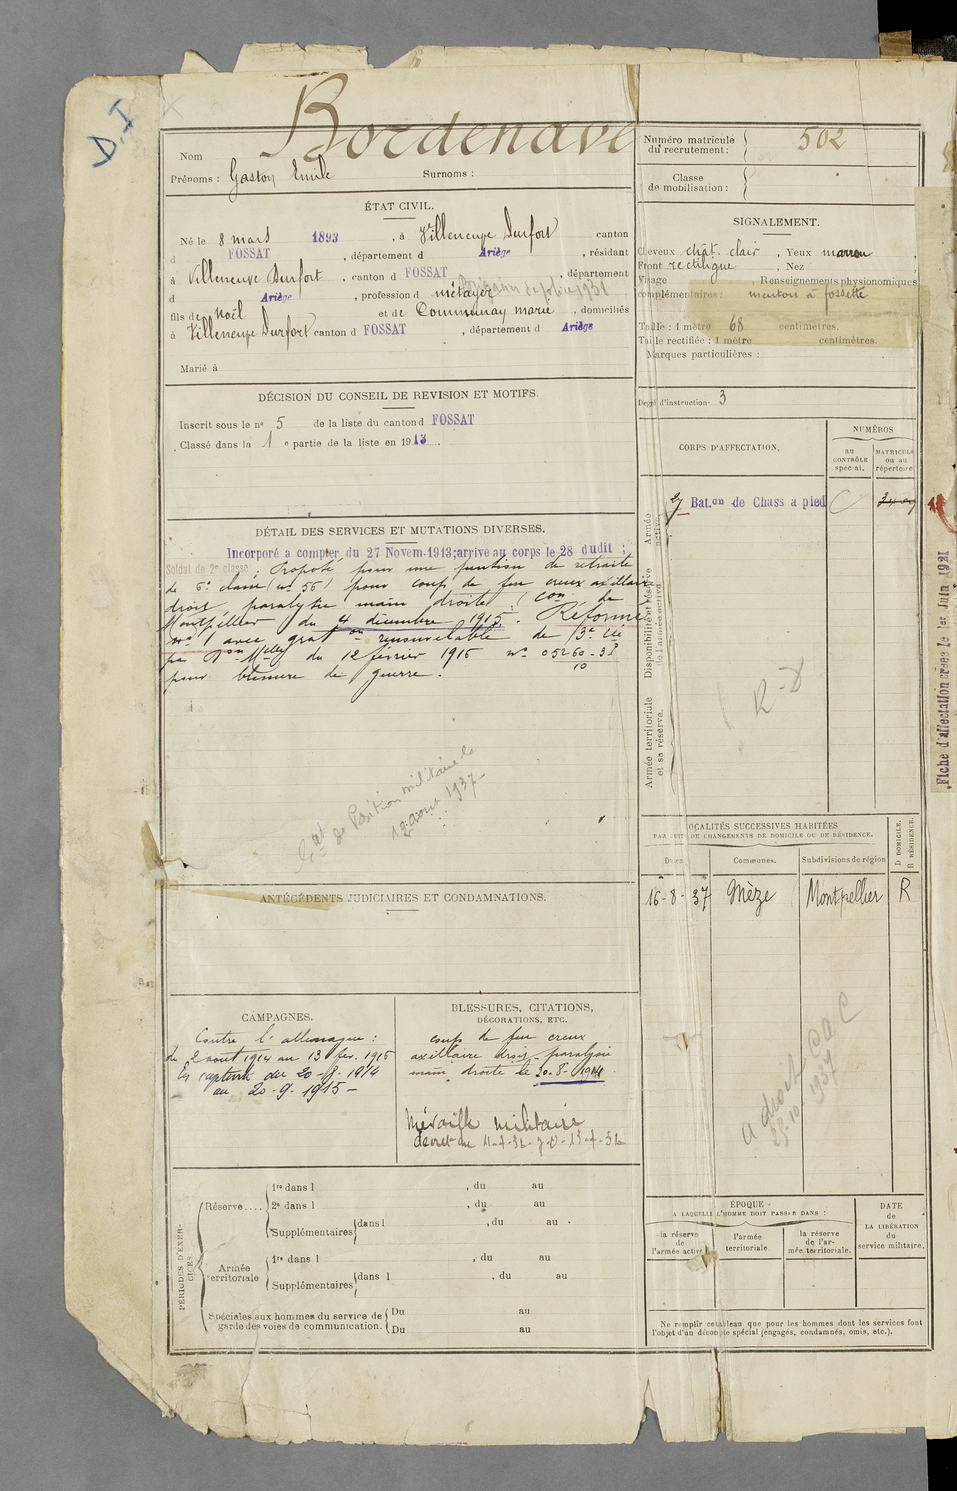 D. I
Nom Bordenave
Prénoms : Gaston Emile Surnoms :
Numéro matricule du recrutement : 502
Classe de mobilisation :
ÉTAT CIVIL.
Né le 8 mars 1893, à Villeneuve Durfort canton
d FOSSAT, département d Ariège, résidant
à Villeneuve Durfort, canton d FOSSAT, département
d Ariège, profession d métayer
fils de Noël et de Communay marie, domiciliés
à Villeneuve Durfort canton d FOSSAT, département d Ariège
Marié à
SIGNALEMENT.
Cheveux chât. clair, Yeux marron,
Front rectiligne, Nez
Visage, Renseignements physionomiques
complémentaires : menton à fossette
Taille : 1 mètre 68 centimètres.
Taille rectifiée : 1 mètre centimètres.
Marques particulières :
Degré d'instruction : 3
DÉCISION DU CONSEIL DE REVISION ET MOTIFS.
Inscrit sous le no 5 de la liste du canton d FOSSAT
Classé dans la 1 e partie de la liste en 1913.
DÉTAIL DES SERVICES ET MUTATIONS DIVERSES.
Incorporé a compter du 27 Novem.1913;arrive au corps le 28 dudit ;
Soldat de 2e classe : Proposé pour une pension de retraite
de 6e classe (no 56) pour coup de feu creux axillaire
droit, paralysie main droite (Con de
Montpellier du 4 décembre 1915. Réformé
no 1 avec graton renouvelable de 3e Cie
par Don Melle du 12 février 1916 no 05260-38
10
pour blessure de guerre.
Cat de Position militaire le
12 aout 1937
CORPS D'AFFECTATION.
NUMÉROS
au CONTRÔLE spécial.
MATRICULE ou au répertoire
Armée active
27 Bat.on de Chass a pied
Disponibilité et réserve de l'armée active
Armée territoriale et sa réserve.
R-D
Fiche d'affectation créée le 1er Juin 1921
LOCALITÉS SUCCESSIVES HABITÉES
PAR SUITE DE CHANGEMENTS DE DOMICILE OU DE RÉSIDENCE.
Dates. Communes. Subdivisions de région D DOMICILE. R RÉSIDENCE.
16-8-37 Mèze Montpellier R
a droit COC
1937
ANTÉCÉDENTS JUDICIAIRES ET CONDAMNATIONS.
CAMPAGNES.
Contre l'allemagne :
du 2 aout 1914 au 13 fév. 1915
En captivité du 20-8-1914
au 20-9-1915-
BLESSURES, CITATIONS,
DÉCORATIONS, ETC.
coup de feu creux
axillaire droit - paralysie
main droite le 20-8-1914
Médaille militaire
décret du
PÉRIODES D'EXERCICES
Réserve....
1re dans l , du au
2e dans l , du au
Supplémentaires dans l , du au
Armée territoriale
1re dans l , du au
Supplémentaires dans l , du au
Spéciales aux hommes du service de garde des voies de communication.
Du au
Du au
ÉPOQUE
A LAQUELLE L'HOMME DOIT PASSER DANS :
la réserve de l'armée active
l'armée territoriale
la réserve de l'armée territoriale.
DATE de LA LIBÉRATION du service militaire.
Ne remplir ce tableau que pour les hommes dont les services font
l'objet d'un décompte spécial (engagés, condamnés, omis, etc.).